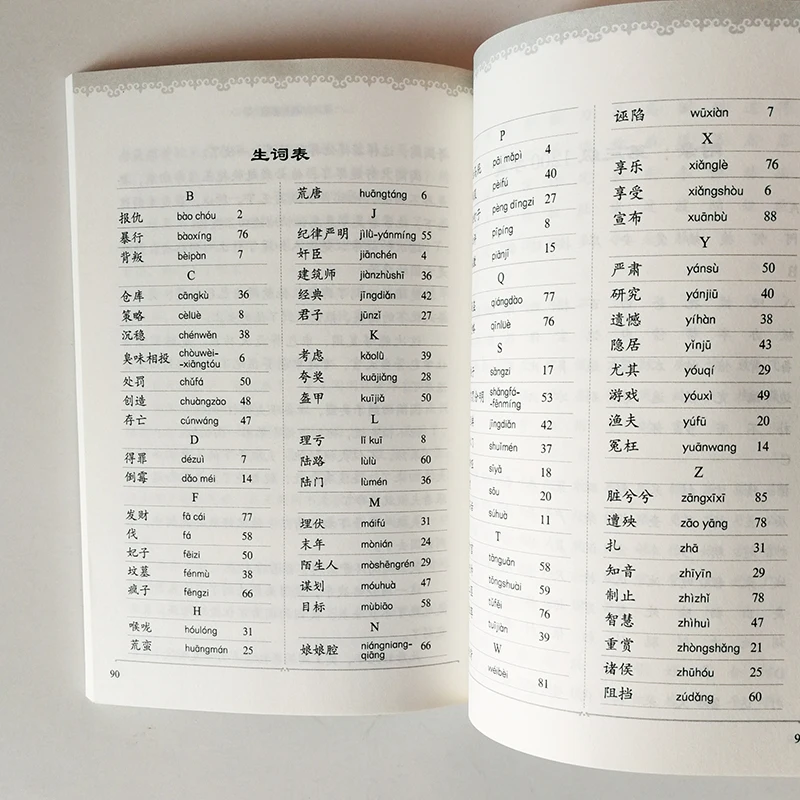 生词表
B
报仇 bào chóu 2
暴行 bàoxíng 76
背叛 bèipàn 7
C
仓库 cāngkù 36
策略 cèlüè 8
沉稳 chénwěn 38
臭味相投 chòuwèi-
-xiāngtóu 6
处罚 chǔfá 50
创造 chuàngzào 48
存亡 cúnwáng 47
D
得罪 dézuì 7
倒霉 dǎo méi 14
F
发财 fā cái 77
伐 fá 58
妃子 fēizi 50
坟墓 fénmù 38
疯子 fēngzi 66
H
喉咙 hóulóng 31
荒蛮 huāngmán 25
荒唐 huāngtáng 6
J
纪律严明 jìlǜ-yánmíng 55
奸臣 jiānchén 4
建筑师 jiànzhùshī 36
经典 jīngdiǎn 42
君子 jūnzǐ 27
K
考虑 kǎolǜ 39
夸奖 kuājiǎng 28
盔甲 kuījiǎ 50
L
理亏 lǐ kuī 8
陆路 lùlù 60
陆门 lùmén 36
M
埋伏 máifú 31
末年 mònián 24
陌生人 mòshēngrén 29
谋划 móuhuà 47
目标 mùbiāo 58
N
娘娘腔 niángniang-
qiāng 66
90
P
pāi mǎpì 4
pèifú 40
pèng dīngzi 27
pīpíng 8
piànjī 15
Q
qiángdào 77
qīnlüè 76
S
sǎngzi 17
shǎngfá-
-fēnmíng 53
jīngdiǎn 42
shuǐmén 37
sīyǎ 18
sōu 20
súhuà 11
T
tānguān 58
tǒngshuài 59
tǔfěi 76
tuījiàn 39
W
wéibèi 81
诬陷 wūxiàn 7
X
享乐 xiǎnglè 76
享受 xiǎngshòu 6
宣布 xuānbù 88
Y
严肃 yánsù 50
研究 yánjiū 40
遗憾 yíhàn 38
隐居 yǐnjū 43
尤其 yóuqí 29
游戏 yóuxì 49
渔夫 yúfū 20
冤枉 yuānwang 14
Z
脏兮兮 zāngxīxī 85
遭殃 zāo yāng 78
扎 zhā 31
知音 zhīyīn 29
制止 zhìzhǐ 78
智慧 zhìhuì 47
重赏 zhòngshǎng 21
诸侯 zhūhóu 25
阻挡 zǔdǎng 60